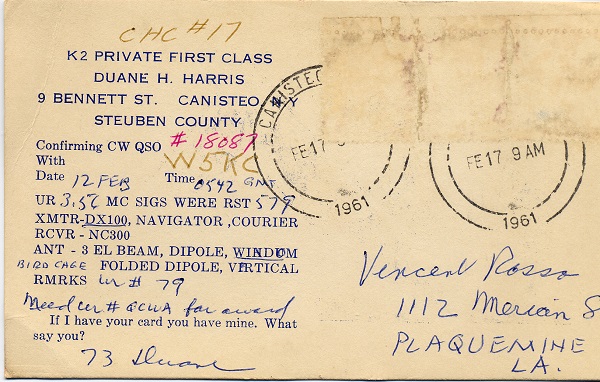 CHC #17
K2 PRIVATE FIRST CLASS
DUANE H. HARRIS
9 BENNETT ST. CANISTEO N Y
STEUBEN COUNTY
#18087
Confirming CW QSO
With W5KC
Date 12 FEB Time 0542 GMT
UR 3.56 MC SIGS WERE RST 579
XMTR-DX100, NAVIGATOR, COURIER
RCVR - NC300
ANT - 3 EL BEAM, DIPOLE, WINDOM
BIRD CAGE FOLDED DIPOLE, VERTICAL
RMRKS Ur # 79
Need ur # QCWA for award
If I have your card you have mine. What
say you?
73 Duane
CANISTEO
FEB 17
1961
FE 17 9 AM
1961
Vincent Rosso
1112 Merian S
PLAQUEMINE
LA.